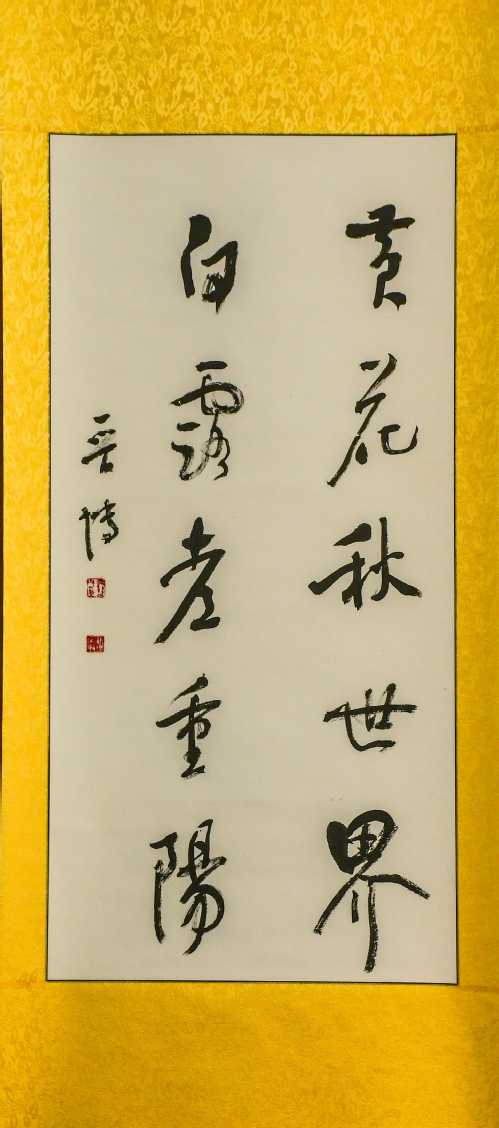 黄花秋世界
白露老重陽
晉博